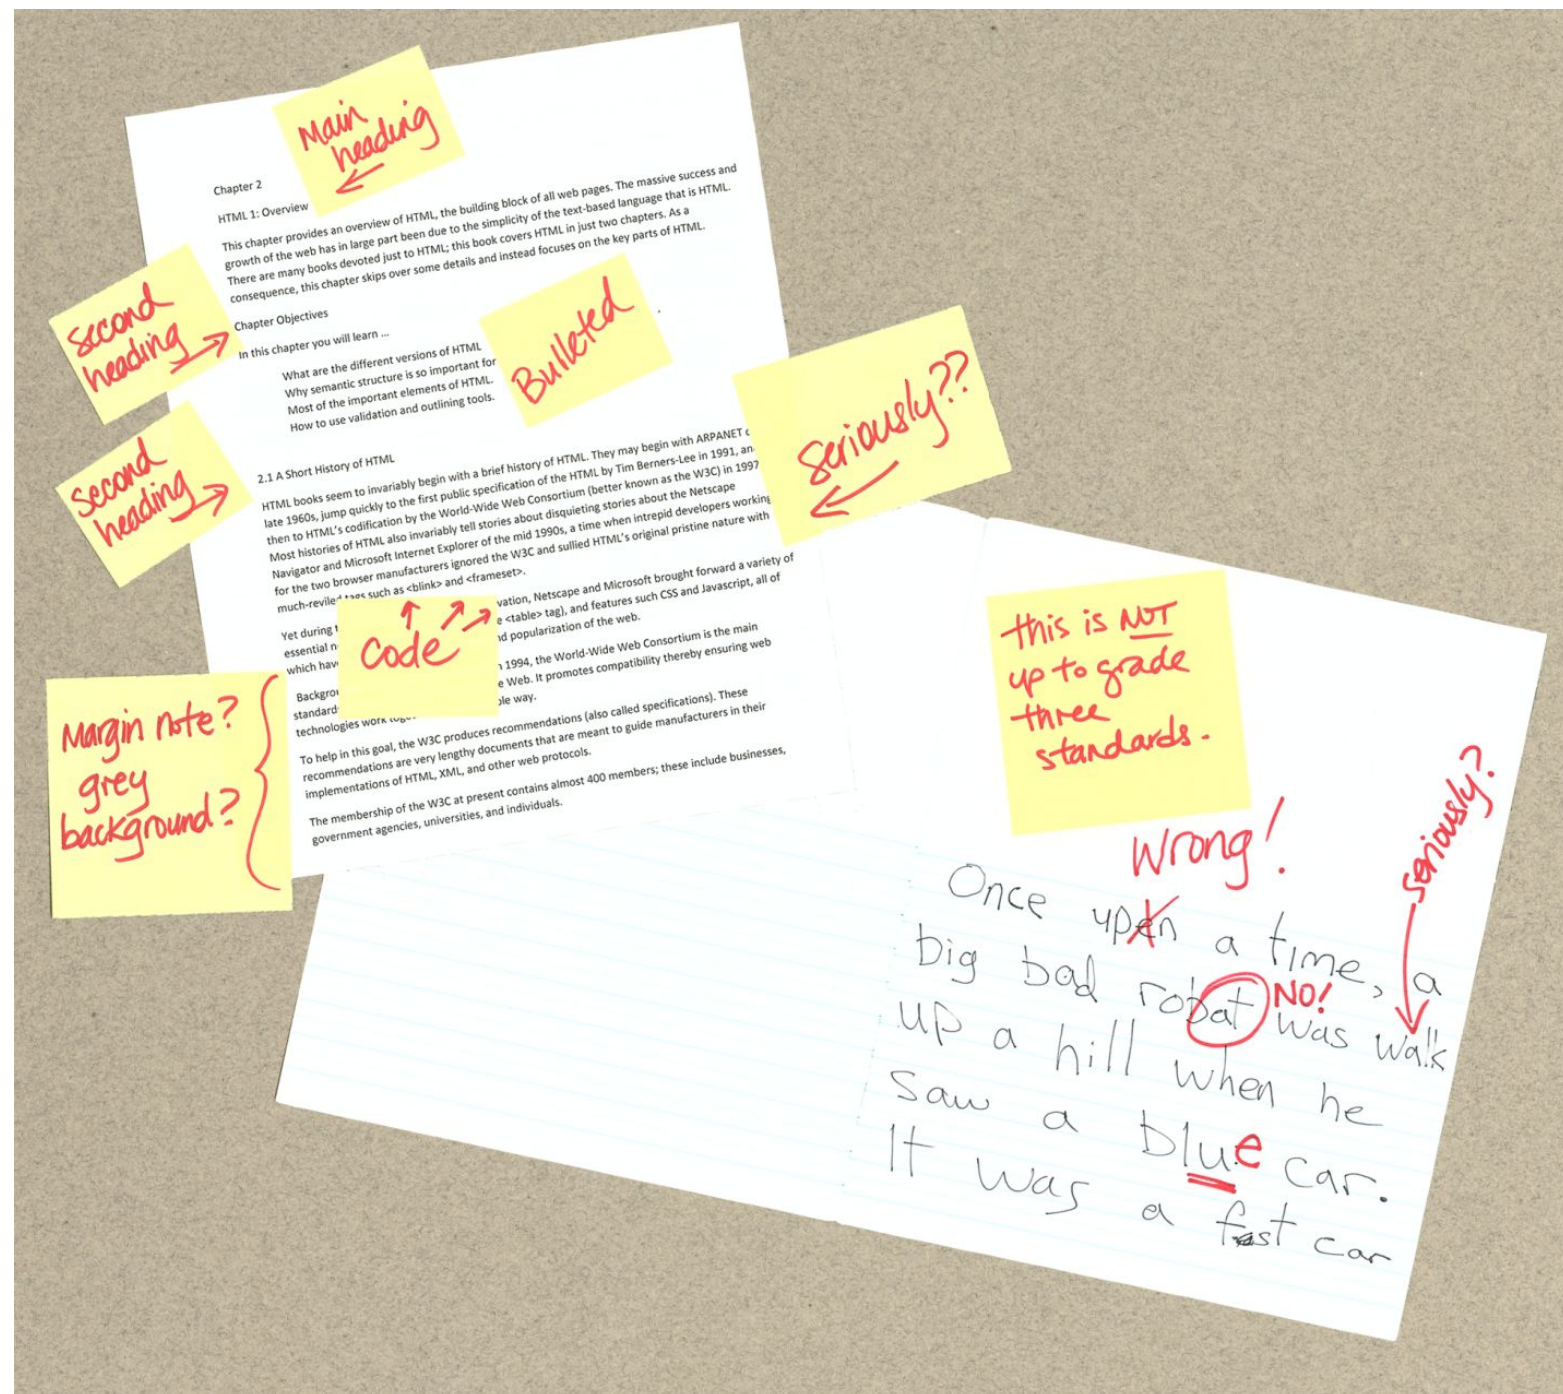 Main
heading
Chapter 2
HTML 1: Overview
This chapter provides an overview of HTML, the building block of all web pages. The massive success and
growth of the web has in large part been due to the simplicity of the text-based language that is HTML.
There are many books devoted just to HTML; this book covers HTML in just two chapters. As a
consequence, this chapter skips over some details and instead focuses on the key parts of HTML.
second
heading
Chapter Objectives
In this chapter you will learn ...
What are the different versions of HTML
Why semantic structure is so important for
Most of the important elements of HTML.
How to use validation and outlining tools.
Bulleted
second
heading
2.1 A Short History of HTML
HTML books seem to invariably begin with a brief history of HTML. They may begin with ARPANET
late 1960s, jump quickly to the first public specification of the HTML by Tim Berners-Lee in 1991, an
then to HTML's codification by the World-Wide Web Consortium (better known as the W3C) in 1997
Most histories of HTML also invariably tell stories about disquieting stories about the Netscape
Navigator and Microsoft Internet Explorer of the mid 1990s, a time when intrepid developers working
for the two browser manufacturers ignored the W3C and sullied HTML's original pristine nature with
much-reviled tags such as <blink> and <frameset>.
Seriously??
Yet during vation, Netscape and Microsoft brought forward a variety of
essential <table> tag), and features such CSS and Javascript, all of
which popularization of the web.
Code
Backgrou 1994, the World-Wide Web Consortium is the main
standard Web. It promotes compatibility thereby ensuring web
technologies work way.
To help in this goal, the W3C produces recommendations (also called specifications). These
recommendations are very lengthy documents that are meant to guide manufacturers in their
implementations of HTML, XML, and other web protocols.
The membership of the W3C at present contains almost 400 members; these include businesses,
government agencies, universities, and individuals.
Margin note?
grey
background?
this is NOT
up to grade
three
standards.
Wrong!
seriously?
Once upen a time, a
big bad robat was walk
NO!
up a hill when he
saw a blue car.
It was a fast car